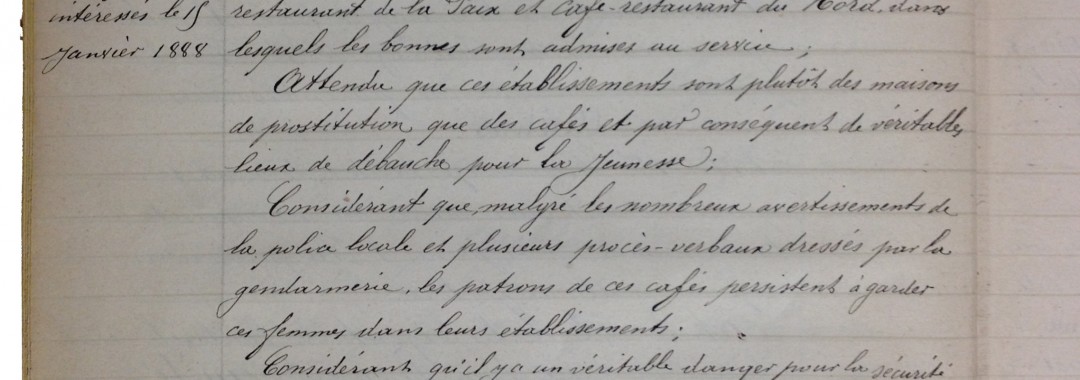 intéressés le 15
Janvier 1888
restaurant de la Paix et Café-restaurant du Nord, dans
lesquels les bonnes sont admises au service ;
Attendu que ces établissements sont plutôt des maisons
de prostitution que des cafés et par conséquent de véritables
lieux de débauche pour la Jeunesse ;
Considérant que, malgré les nombreux avertissements de
la police locale et plusieurs procès-verbaux dressés par la
gendarmerie, les patrons de ces cafés persistent à garder
ces femmes dans leurs établissements ;
Considérant qu'il y a un véritable danger pour la sécurité